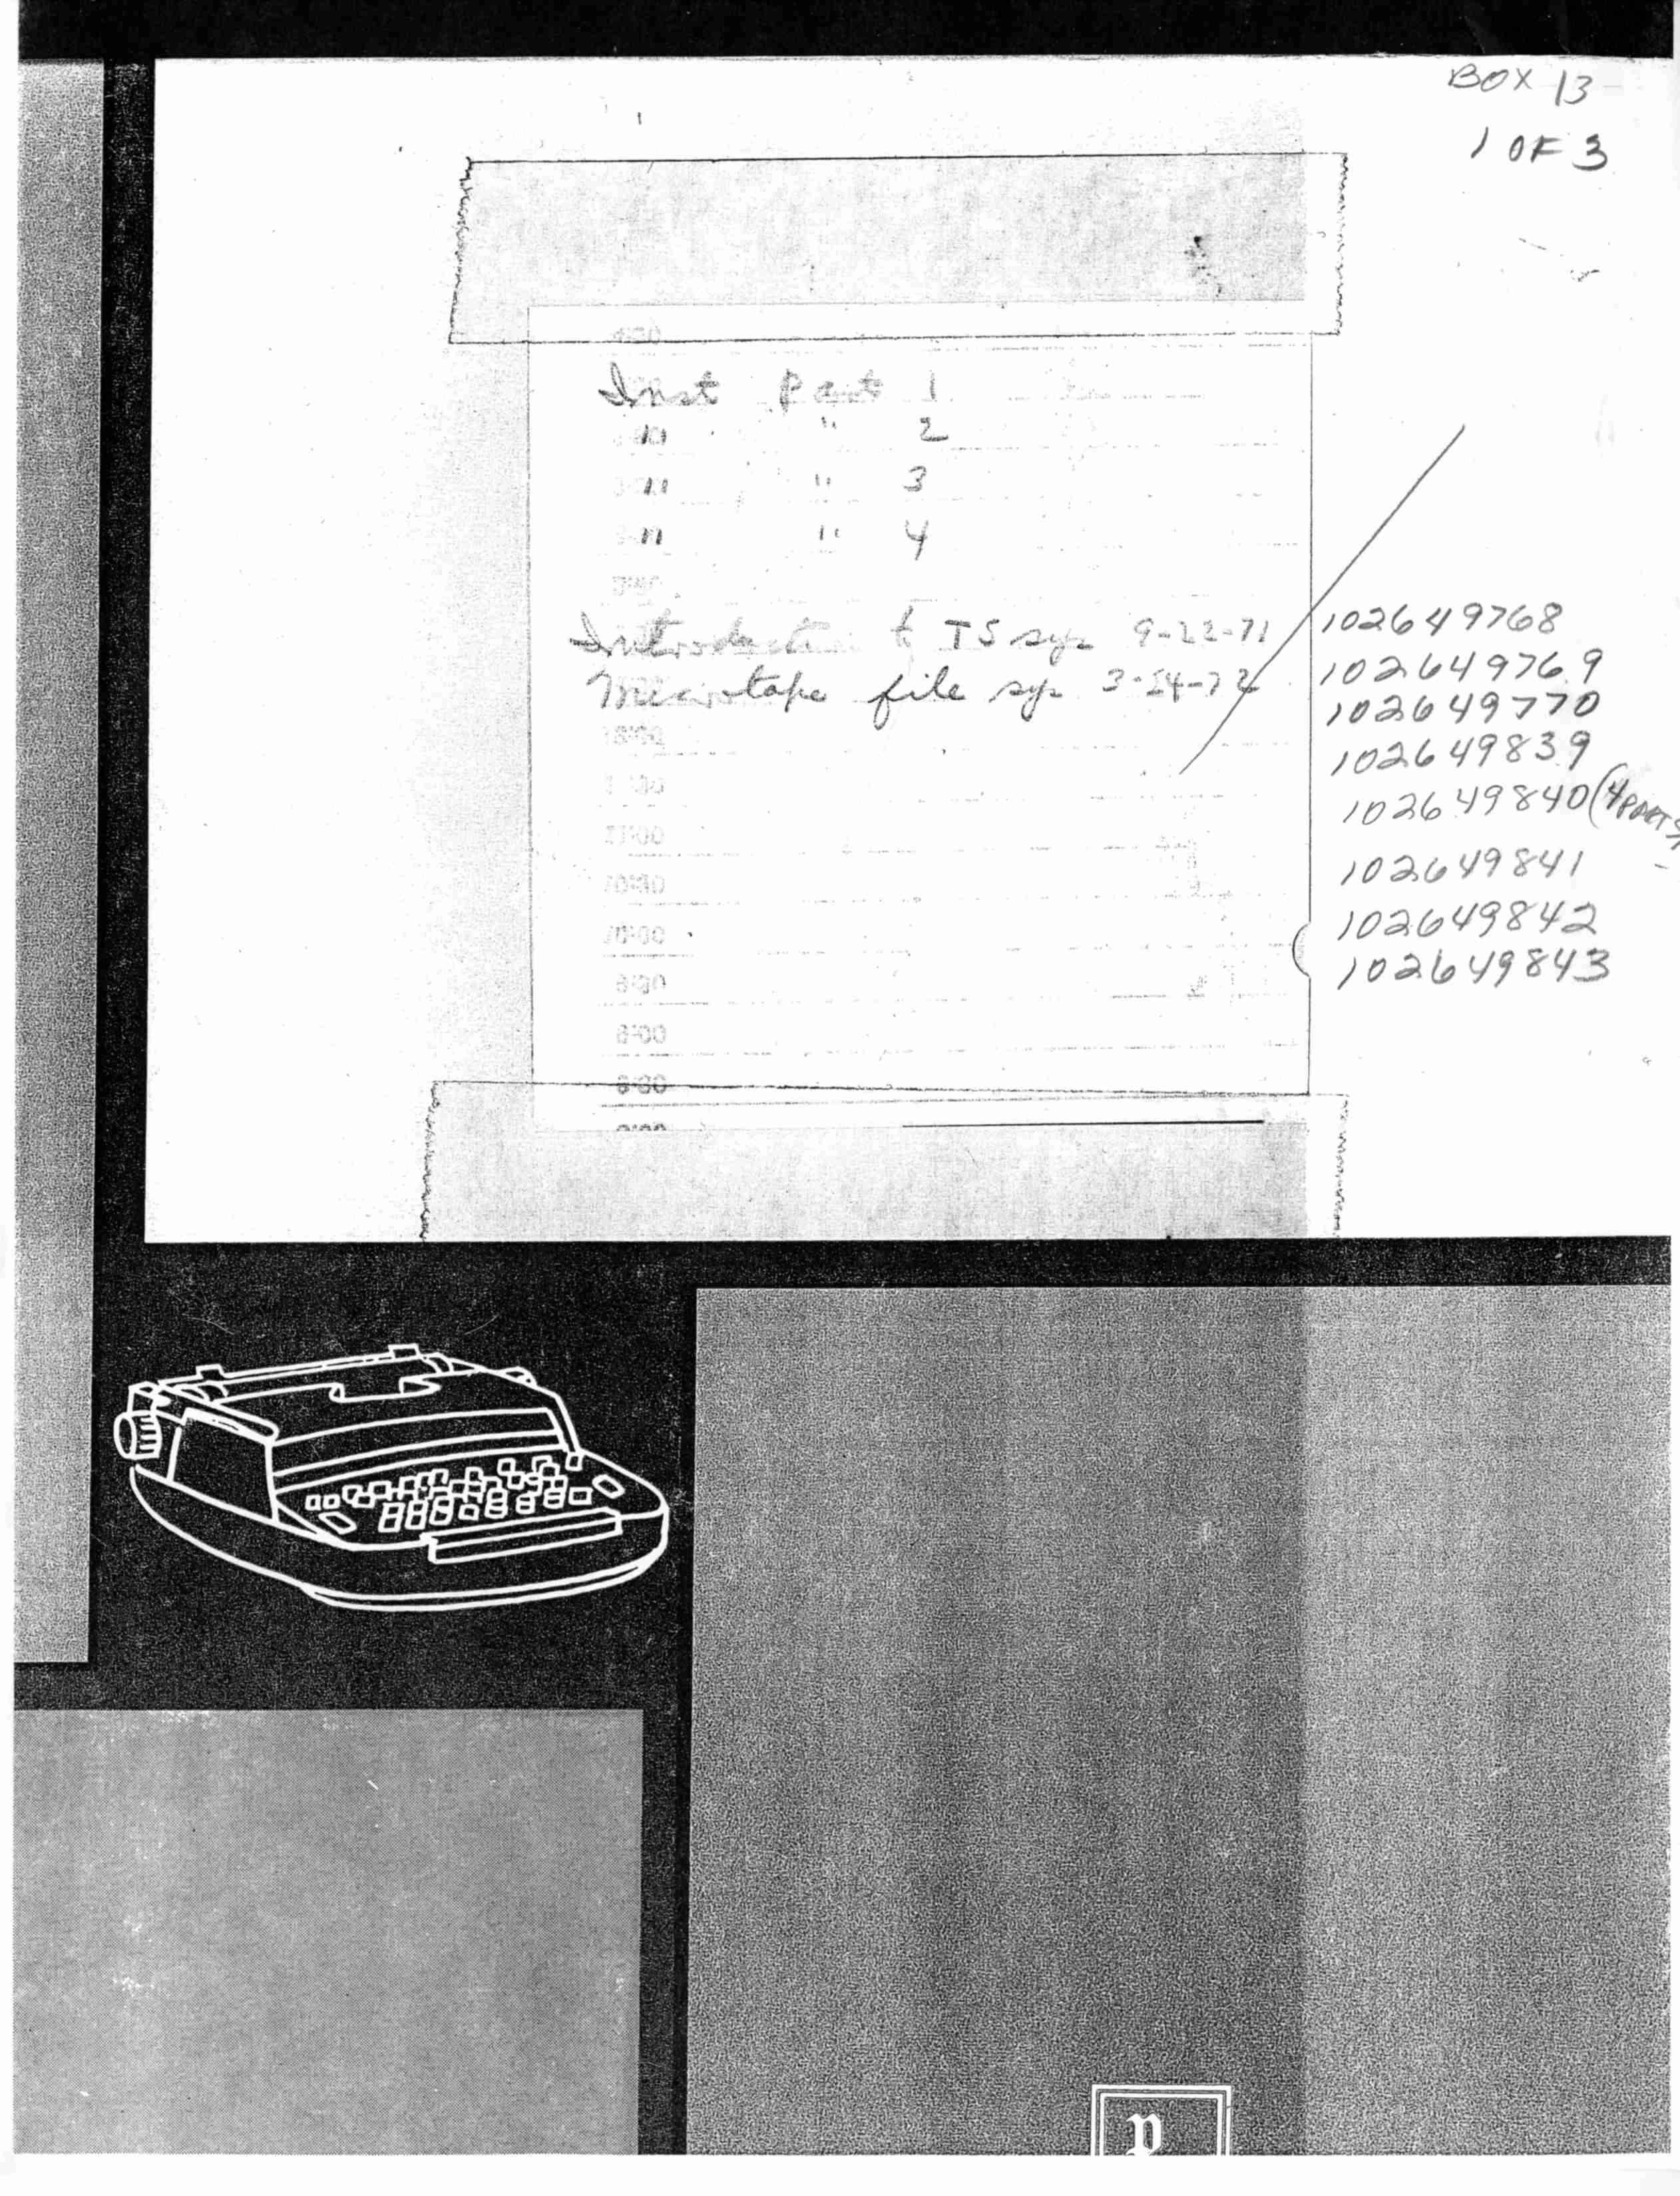 BOX 13
1 OF 3
Inst Part 1
" " 2
" " 3
" " 4
Introduction to TS sys 9-22-71
Microtape file sys 3-24-72
102649768
102649769
102649770
102649839
102649840 (4 PARTS)
102649841
102649842
102649843
10:30
10:00
8:00
p